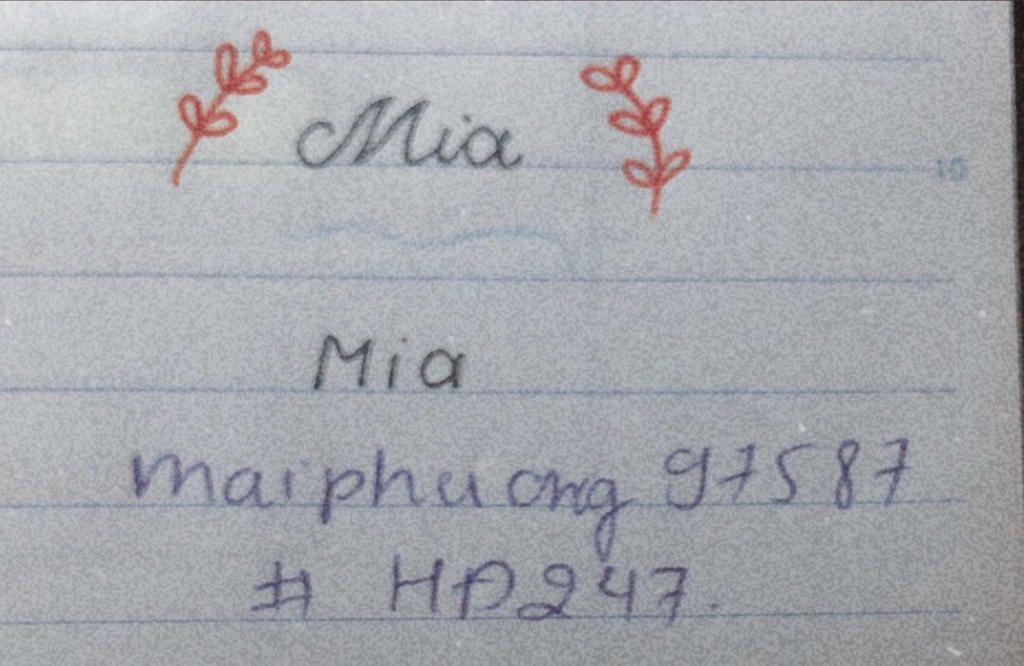 Mia
10
Mia
maiphuong 97587
# HĐ247.